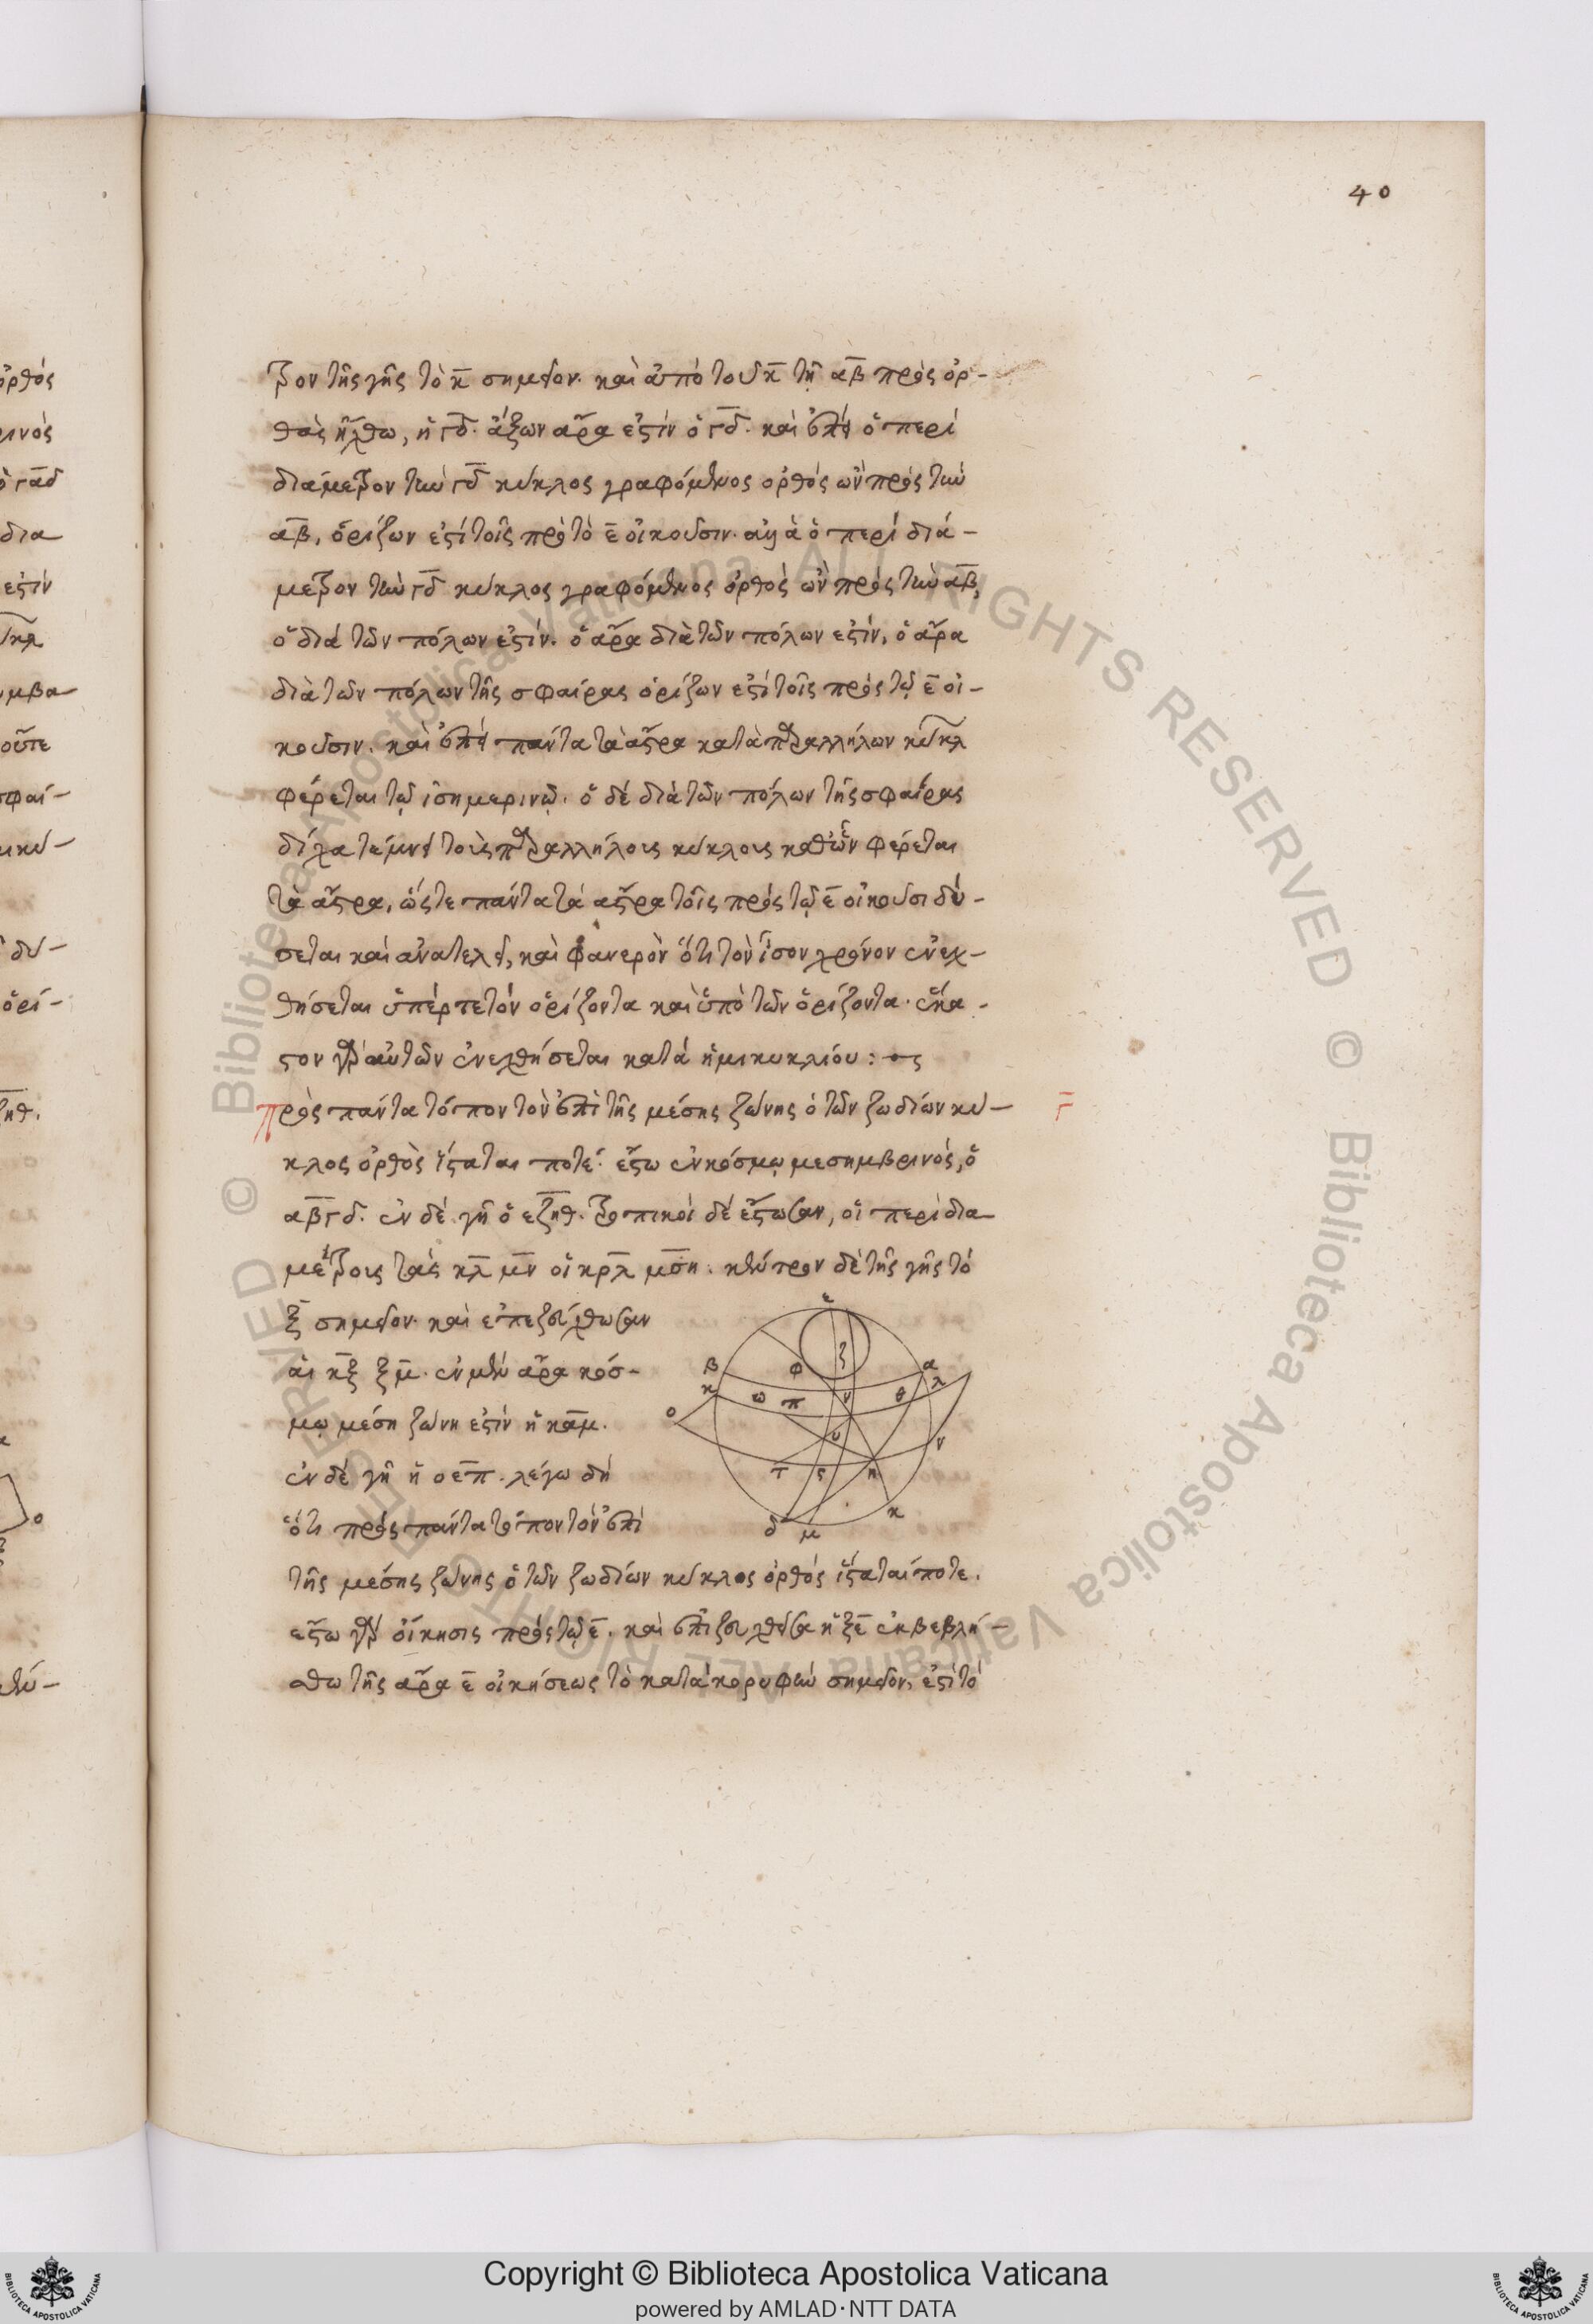 40
τρον τῆς γῆς τὸ κ̅ σημεῖον. καὶ ἀπὸ τοῦ κ̅ τῇ α̅β̅ πρὸς ὀρ-
θὰς ἤχθω, ἡ γ̅δ̅. ἄξων ἄρα ἐστὶν ὁ γ̅δ̅. καὶ ἐπεὶ ὁ περὶ
διάμετρον τὴν γ̅δ̅ κύκλος γραφόμενος ὀρθὸς ὢν πρὸς τὴν
α̅β̅, ὁρίζων ἐστὶ τοῖς πρὸς τὸ ε̅ οἰκοῦσιν. ἀλλὰ ὁ περὶ διά-
μετρον τὴν γ̅δ̅ κύκλος γραφόμενος ὀρθὸς ὢν πρὸς τὴν α̅β̅,
ὁ διὰ τῶν πόλων ἐστίν. ὁ ἄρα διὰ τῶν πόλων ἐστίν, ὁ ἄρα
διὰ τῶν πόλων τῆς σφαίρας ὁρίζων ἐστὶ τοῖς πρὸς τῷ ε̅ οἰ-
κοῦσιν. καὶ ἐπεὶ πάντα τὰ ἄστρα κατὰ παραλλήλων κύκλ
φέρεται τῷ ἰσημερινῷ. ὁ δὲ διὰ τῶν πόλων τῆς σφαίρας
δίχα τέμνει τοὺς παραλλήλους κύκλους καθ' ὧν φέρεται
τὰ ἄστρα, ὥστε πάντα τὰ ἄστρα τοῖς πρὸς τῷ ε̅ οἰκοῦσι δύ-
σεται καὶ ἀνατελεῖ, καὶ φανερὸν ὅτι τὸν ἴσον χρόνον ἐνεχ-
θήσεται ὑπέρ τε τὸν ὁρίζοντα καὶ ὑπὸ τῶν ὁρίζοντα. ἕκα-
στον γὰρ αὐτῶν ἐνεχθήσεται κατὰ ἡμικυκλίου :
πρὸς πάντα τόπον τὸν ἐπὶ τῆς μέσης ζώνης ὁ τῶν ζωδίων κύ-
κλος ὀρθὸς ἵσταται ποτέ. ἔστω ἐν κόσμῳ μεσημβρινός, ὁ
α̅β̅γ̅δ̅. ἐν δὲ γῇ ὁ ε̅ζ̅η̅θ̅. τροπικοὶ δὲ ἔστωσαν, οἱ περὶ δια
μέτροις τὰς κ̅λ̅ μ̅ν̅ οἱ κ̅ρ̅λ̅ μ̅σ̅η̅. κέντρον δὲ τῆς γῆς τὸ
ξ̅ σημεῖον. καὶ ἐπεζεύχθωσαν
αἱ κ̅ξ̅ ξ̅μ̅. ἐν μὲν ἄρα κόσ-
μῳ μέση ζώνη ἐστὶν ἡ κ̅α̅μ̅.
ἐν δὲ γῇ ἡ ο̅ε̅π̅. λέγω δὴ
ὅτι πρὸς πάντα τόπον τὸν ἐπὶ
τῆς μέσης ζώνης ὁ τῶν ζωδίων κύκλος ὀρθὸς ἵσταταί ποτε.
ἔστω γὰρ οἴκησις πρὸς τῷ ε̅. καὶ ἐπιζευχθεῖσα ἡ ξ̅ε̅ ἐκβεβλή-
σθω τῆς ἄρα ε̅ οἰκήσεως τὸ κατὰ κορυφὴν σημεῖον, ἐστὶ τὸ
Copyright © Biblioteca Apostolica Vaticana
powered by AMLAD·NTT DATA